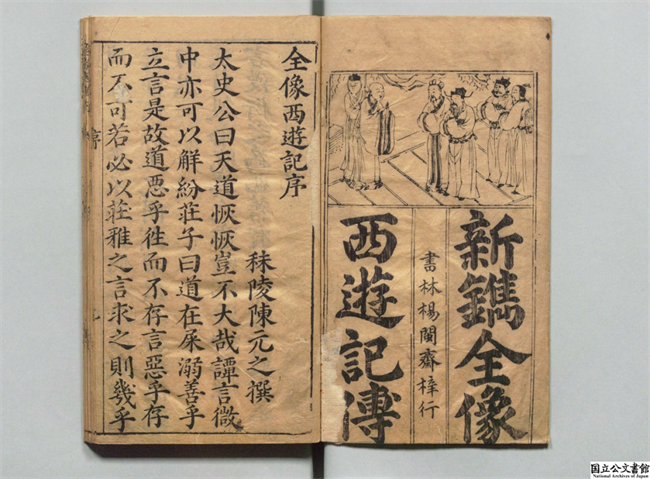 新鐫全像
書林楊閩齋梓行
西遊記傳
全像西遊記序
秣陵陳元之撰
太史公曰天道恢恢豈不大哉譚言微
中亦可以觧紛莊子曰道在屎溺善乎
立言是故道惡乎徃而不存言惡乎存
而不可若必以莊雅之言求之則幾乎
序
国立公文書館
National Archives of Japan